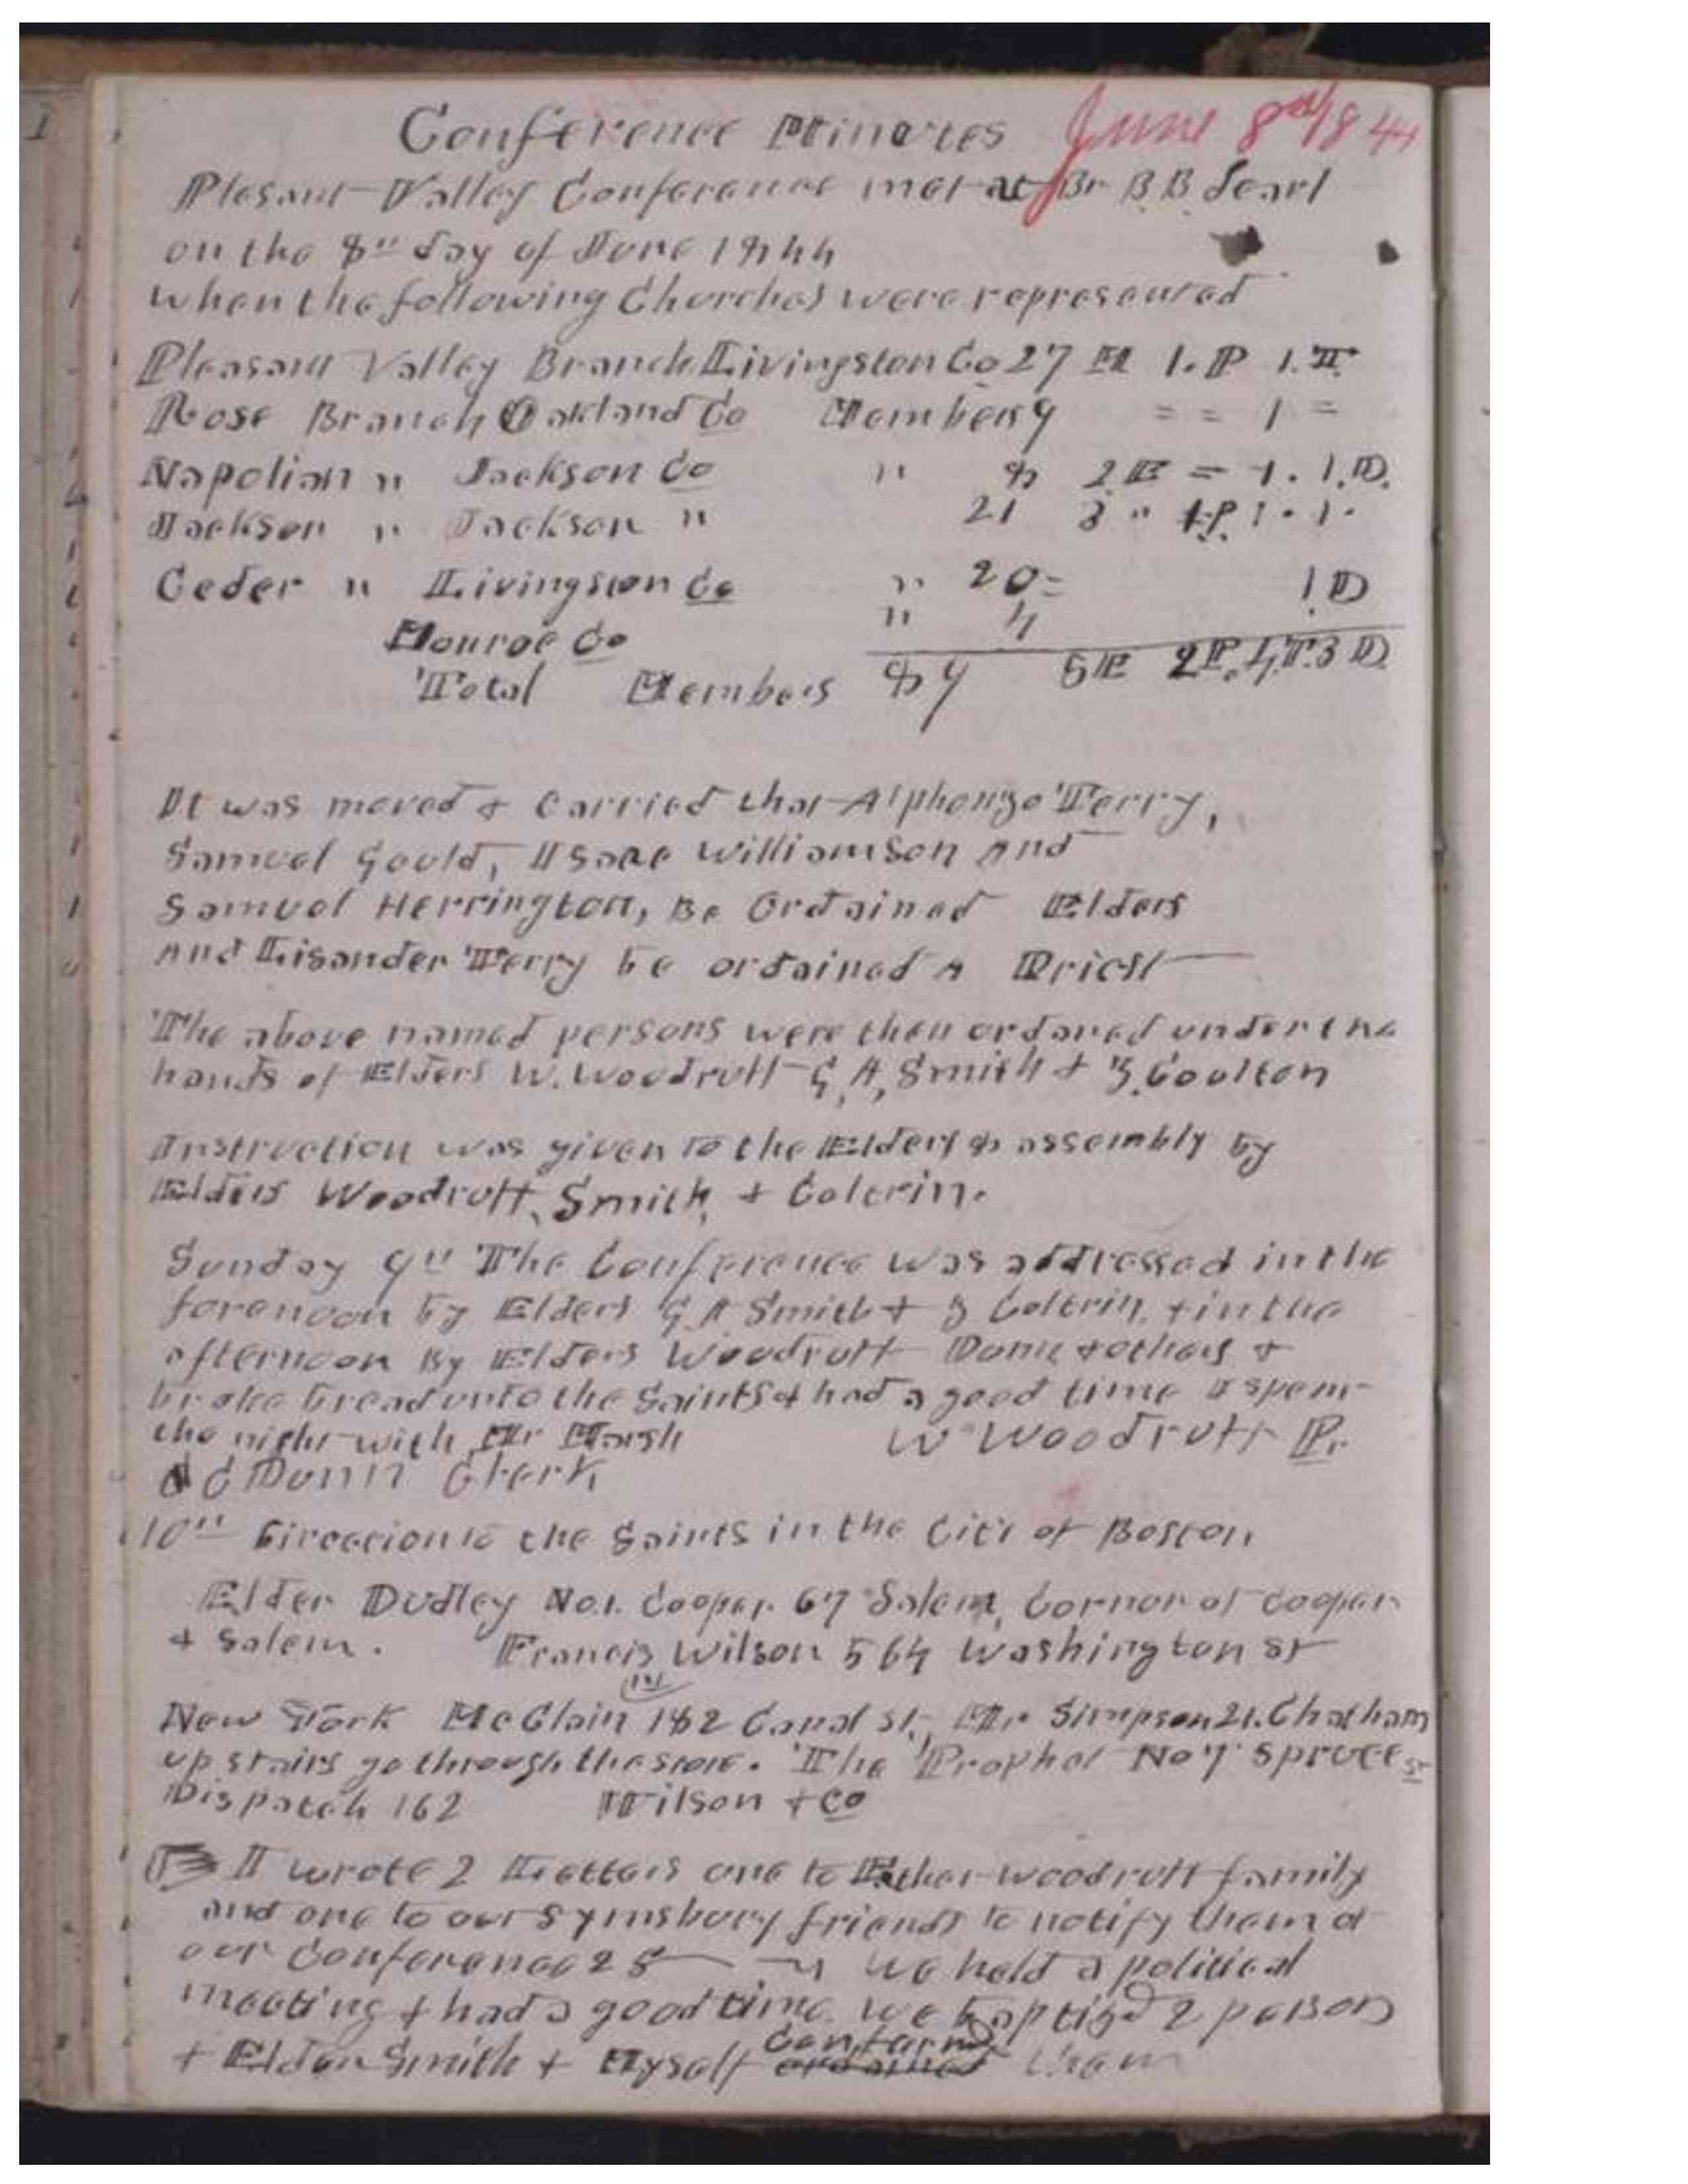 Conference Minutes June 8th 1844
Plesant Valley Conference met at Br B B Searl
on the 8th day of June 1844
when the following Churches were represented
Pleasant Valley Branch Livingston Co 27 M 1. P 1. T.
Rose Branch Oakland Co Members 9 = = 1 =
Napolian " Jackson Co " 8 2 E = 1. 1. D.
Jackson " Jackson " 21 3 " 1 P. 1. 1.
Ceder " Livingston Co " 20 = 1 D
Monroe Co " 4
Total Members 89 5 E 2 P. 4 T. 3 D
It was moved & Carried that Alphonzo Terry,
Samuel Gould, Isaac Williamson And
Samuel Herrington, Be Ordained Elders
And Lisander Terry be ordained A Priest
The above named persons were then ordaned under the
hands of Elders W. Woodruff G, A, Smith & Z. Coulton
Instruction was given to the Elders & assembly by
Elders Woodruff, Smith, & Coltrin.
Sunday 9th The Conference was addressed in the
forenoon by Elders G A Smith & Z Coltrin, & in the
afternoon By Elders Woodruff Dunn & others &
broke bread unto the Saints & had a good time I spent
the night with Mr Marsh W Woodruff Pr.
C Dunn Clerk
10th Direction to the Saints in the Citi of Boston
Elder Dudley No. 1. Cooper. 67 Salem, Cornor of Cooper
& Salem. Francis Wilson 564 Washington st
New York McClain 182 Canal st., Mr Simpson 21. Chatham
up stairs go through the store. The Prophet No 7 Spruce st
Dispatch 162 Wilson & Co
I wrote 2 Letters one to Father Woodruff family
and one to our Symsbury friends to notify them of
our Conference 25 we held a political
meeting & had a good time. we baptized 2 person
& Elder Smith & Myself Confarmd ordained them